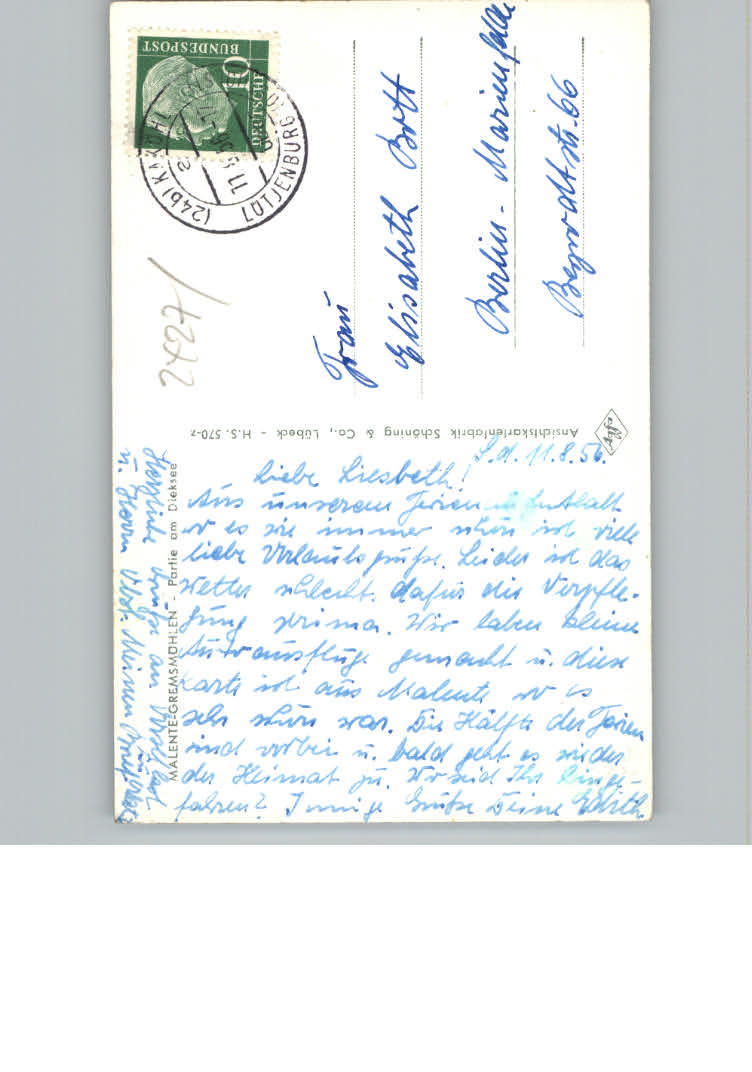 DEUTSCHE
BUNDESPOST
10
(24b) KAKÖHL
LÜTJENBURG
11.8.56
2427/
Frau
Elisabeth Bott
Berlin-Marienfelde
Beyrodtstr. 66
Ansichtskartenfabrik Schöning & Co., Lübeck - H.S. 570-z
MALENTE-GREMSMÜHLEN - Partie am Dieksee
d. 11.8.56.
Liebe Liesbeth!
Aus unserem Ferienaufenthalt
wo es wie immer schön ist viele
liebe Urlaubsgrüße. Leider ist das
Wetter schlecht. dafür die Verpfle-
gung prima. Wir haben kleine
Autoausflüge gemacht u. diese
Karte ist aus Malente wo es
sehr schön war. Die Hälfte der Ferien
sind vorbei u. bald geht es wieder
der Heimat zu. Wo seid Ihr hinge-
fahren? Innige Grüße Deine Edith
Herzliche Grüße an
u. Herrn